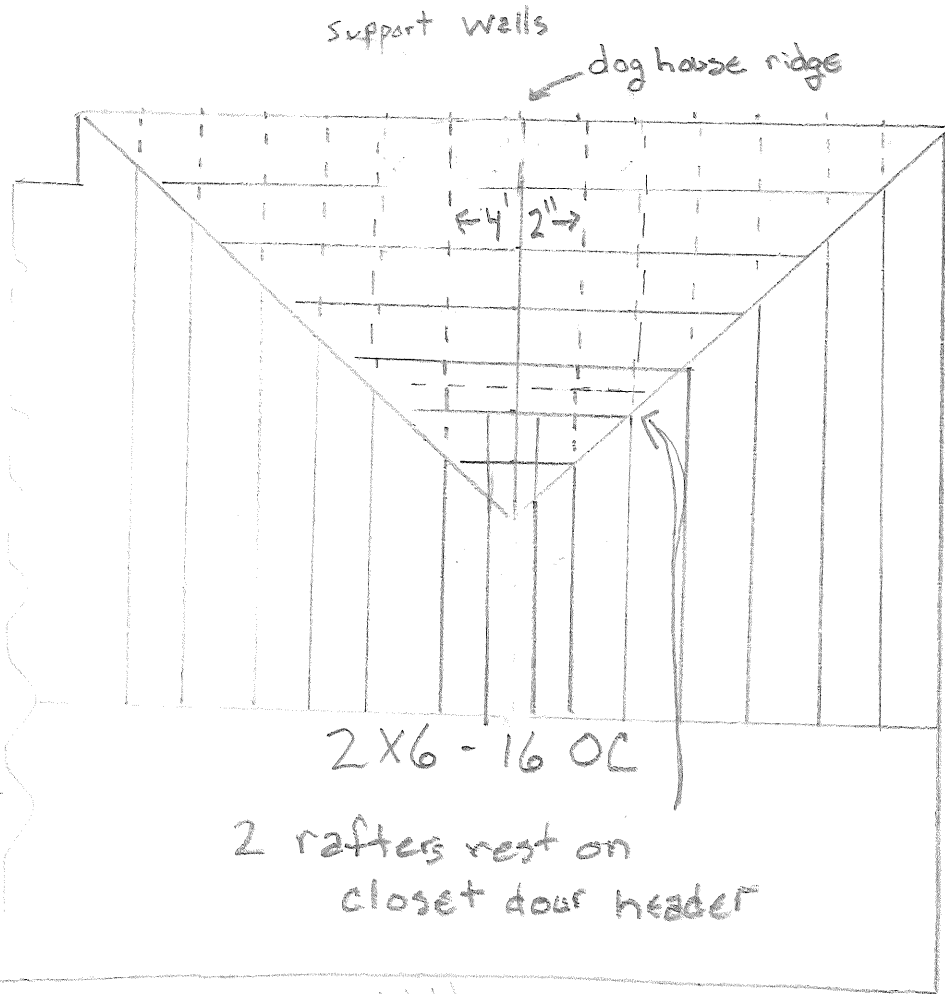 support walls
dog house ridge
←4' 2"→
2X6 - 16 OC
2 rafters rest on
closet door header